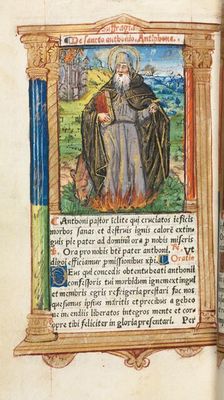 Suffragia.
De sancto anthonio. Antiphona.
Anthoni pastor iclite qui cruciatos reficis
morbos sanas et destruis ignis calorẽ extin
guis pie pater ad dominũ ora p nobis miseris
Ora pro nobis btẽ pater anthoni. R Vt
digni efficiamur pmissionibus xpi. Oratio
Deus qui concedis obtentu beati anthonii
confessoris tui morbidum ignem extingui
et membris egris refrigeria prestari fac nos
quesumus ipsius meritis et precibus a gehen
ne incendiis liberatos integros mente et cor
pore tibi feliciter in gloria presentari. Per